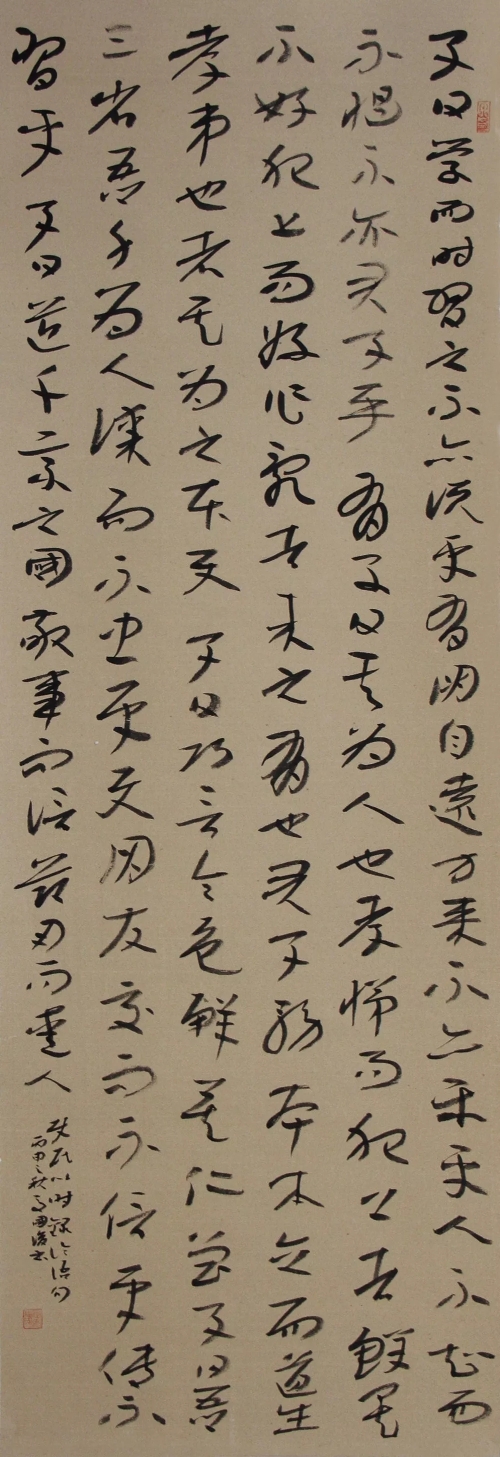 子曰学而时習之不亦说乎有朋自遠方来不亦乐乎人不知而
不愠不亦君子乎 有子曰其为人也孝悌而犯上者鲜矣
不好犯上而好作乱者未之有也君子務本本立而道生
孝弟也者其为之本与 子曰巧言令色鲜矣仁 曾子曰吾
三省吾身为人谋而不忠乎与朋友交而不信乎传不
習乎 子曰道千乘之國敬事而信節用而愛人
使民以时 録论语句
丙申之秋